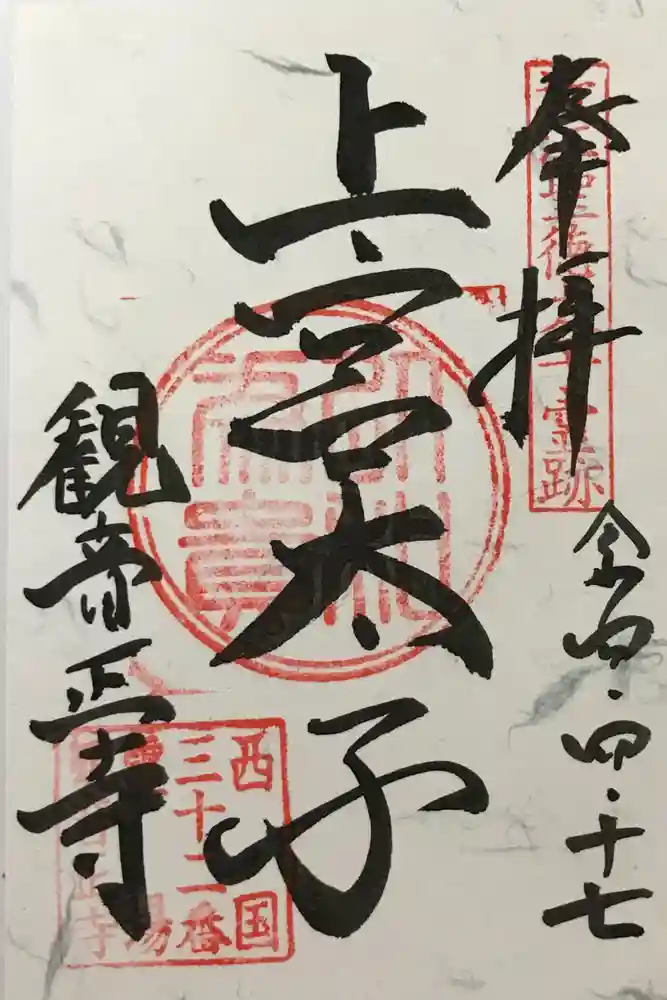 奉拝
聖徳太子霊跡
令四・四・十七
上宮太子
観音正寺
西国
三十二番
霊場
観音正寺